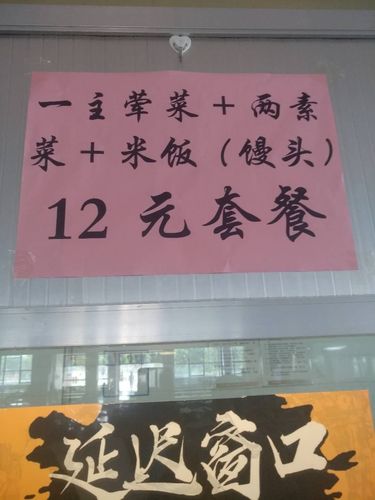 一主荤菜+两素
菜+米饭（馒头）
12元套餐
延迟窗口